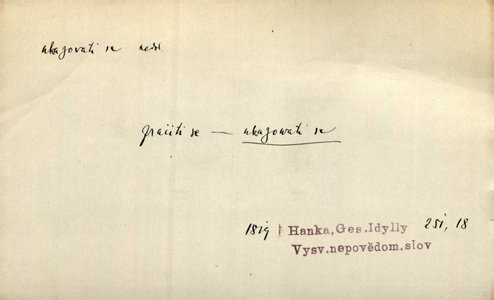 ukazovati se ned.
zračiti se — ukazowati se
1819 Hanka, Ges. Idylly 251, 18
Vysv. nepovědom. slov